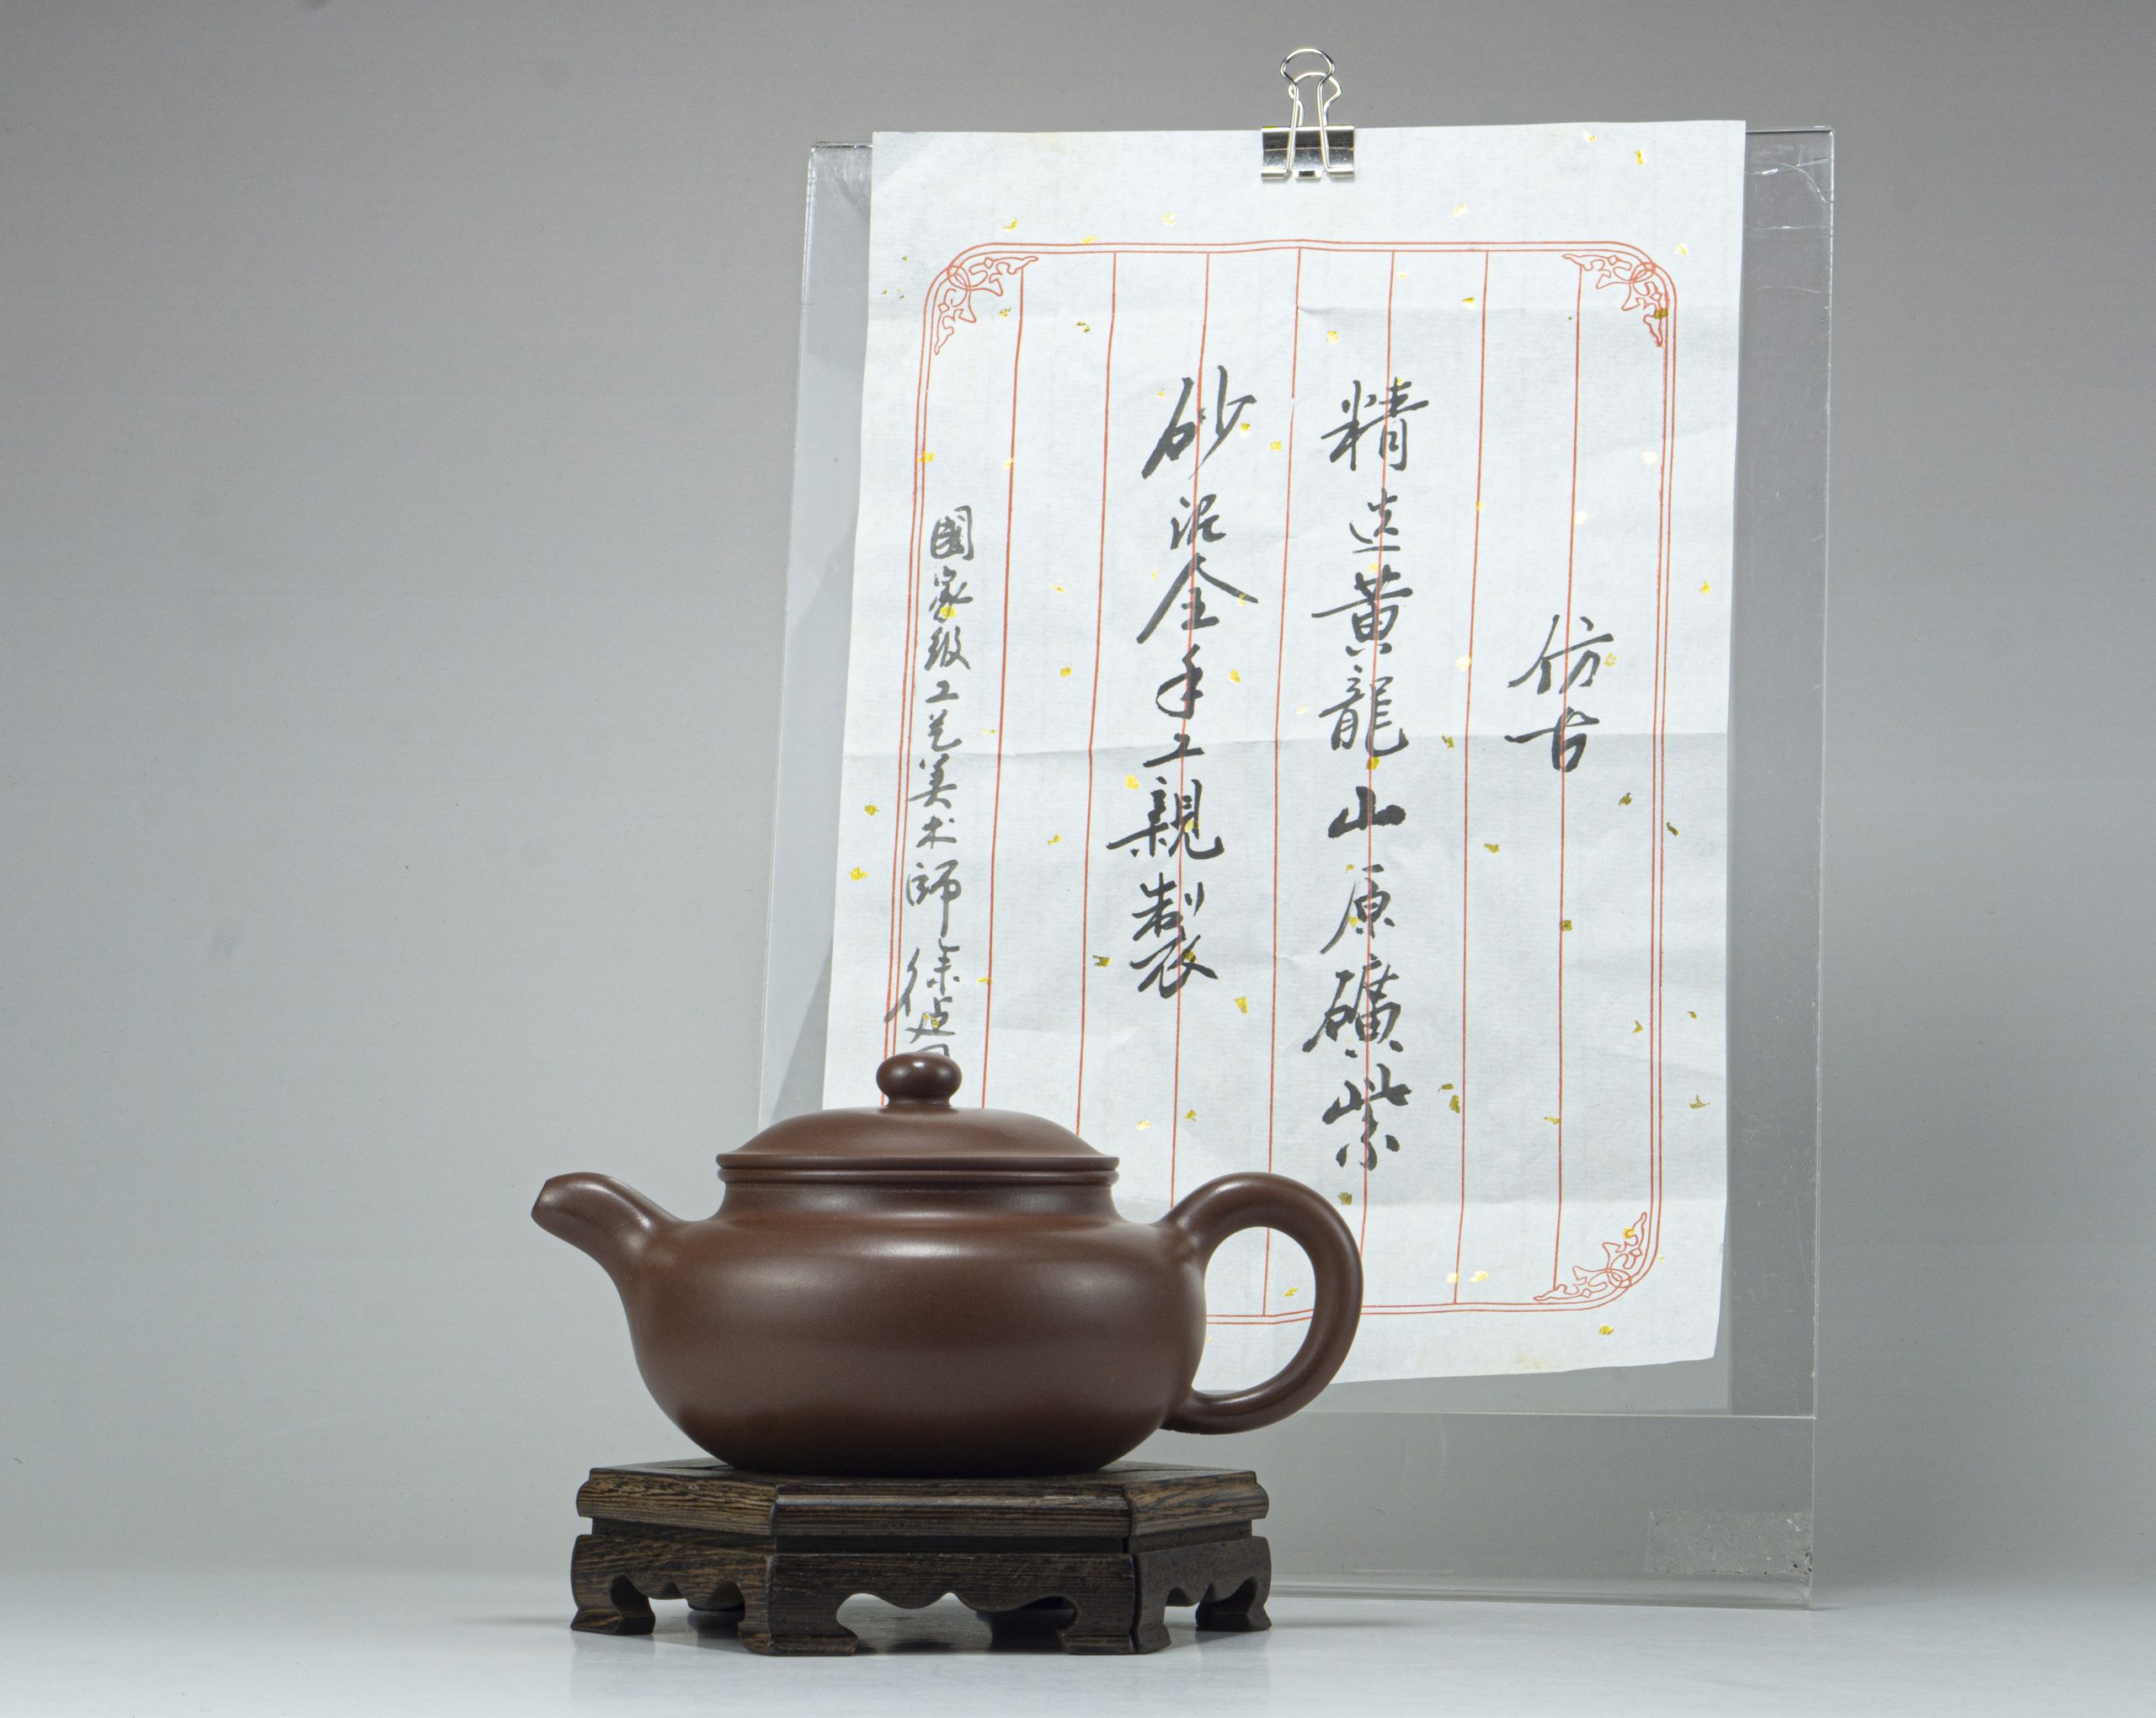 仿古
精选黄龍山原礦紫
砂泥全手工親製
國家级工艺美术師徐